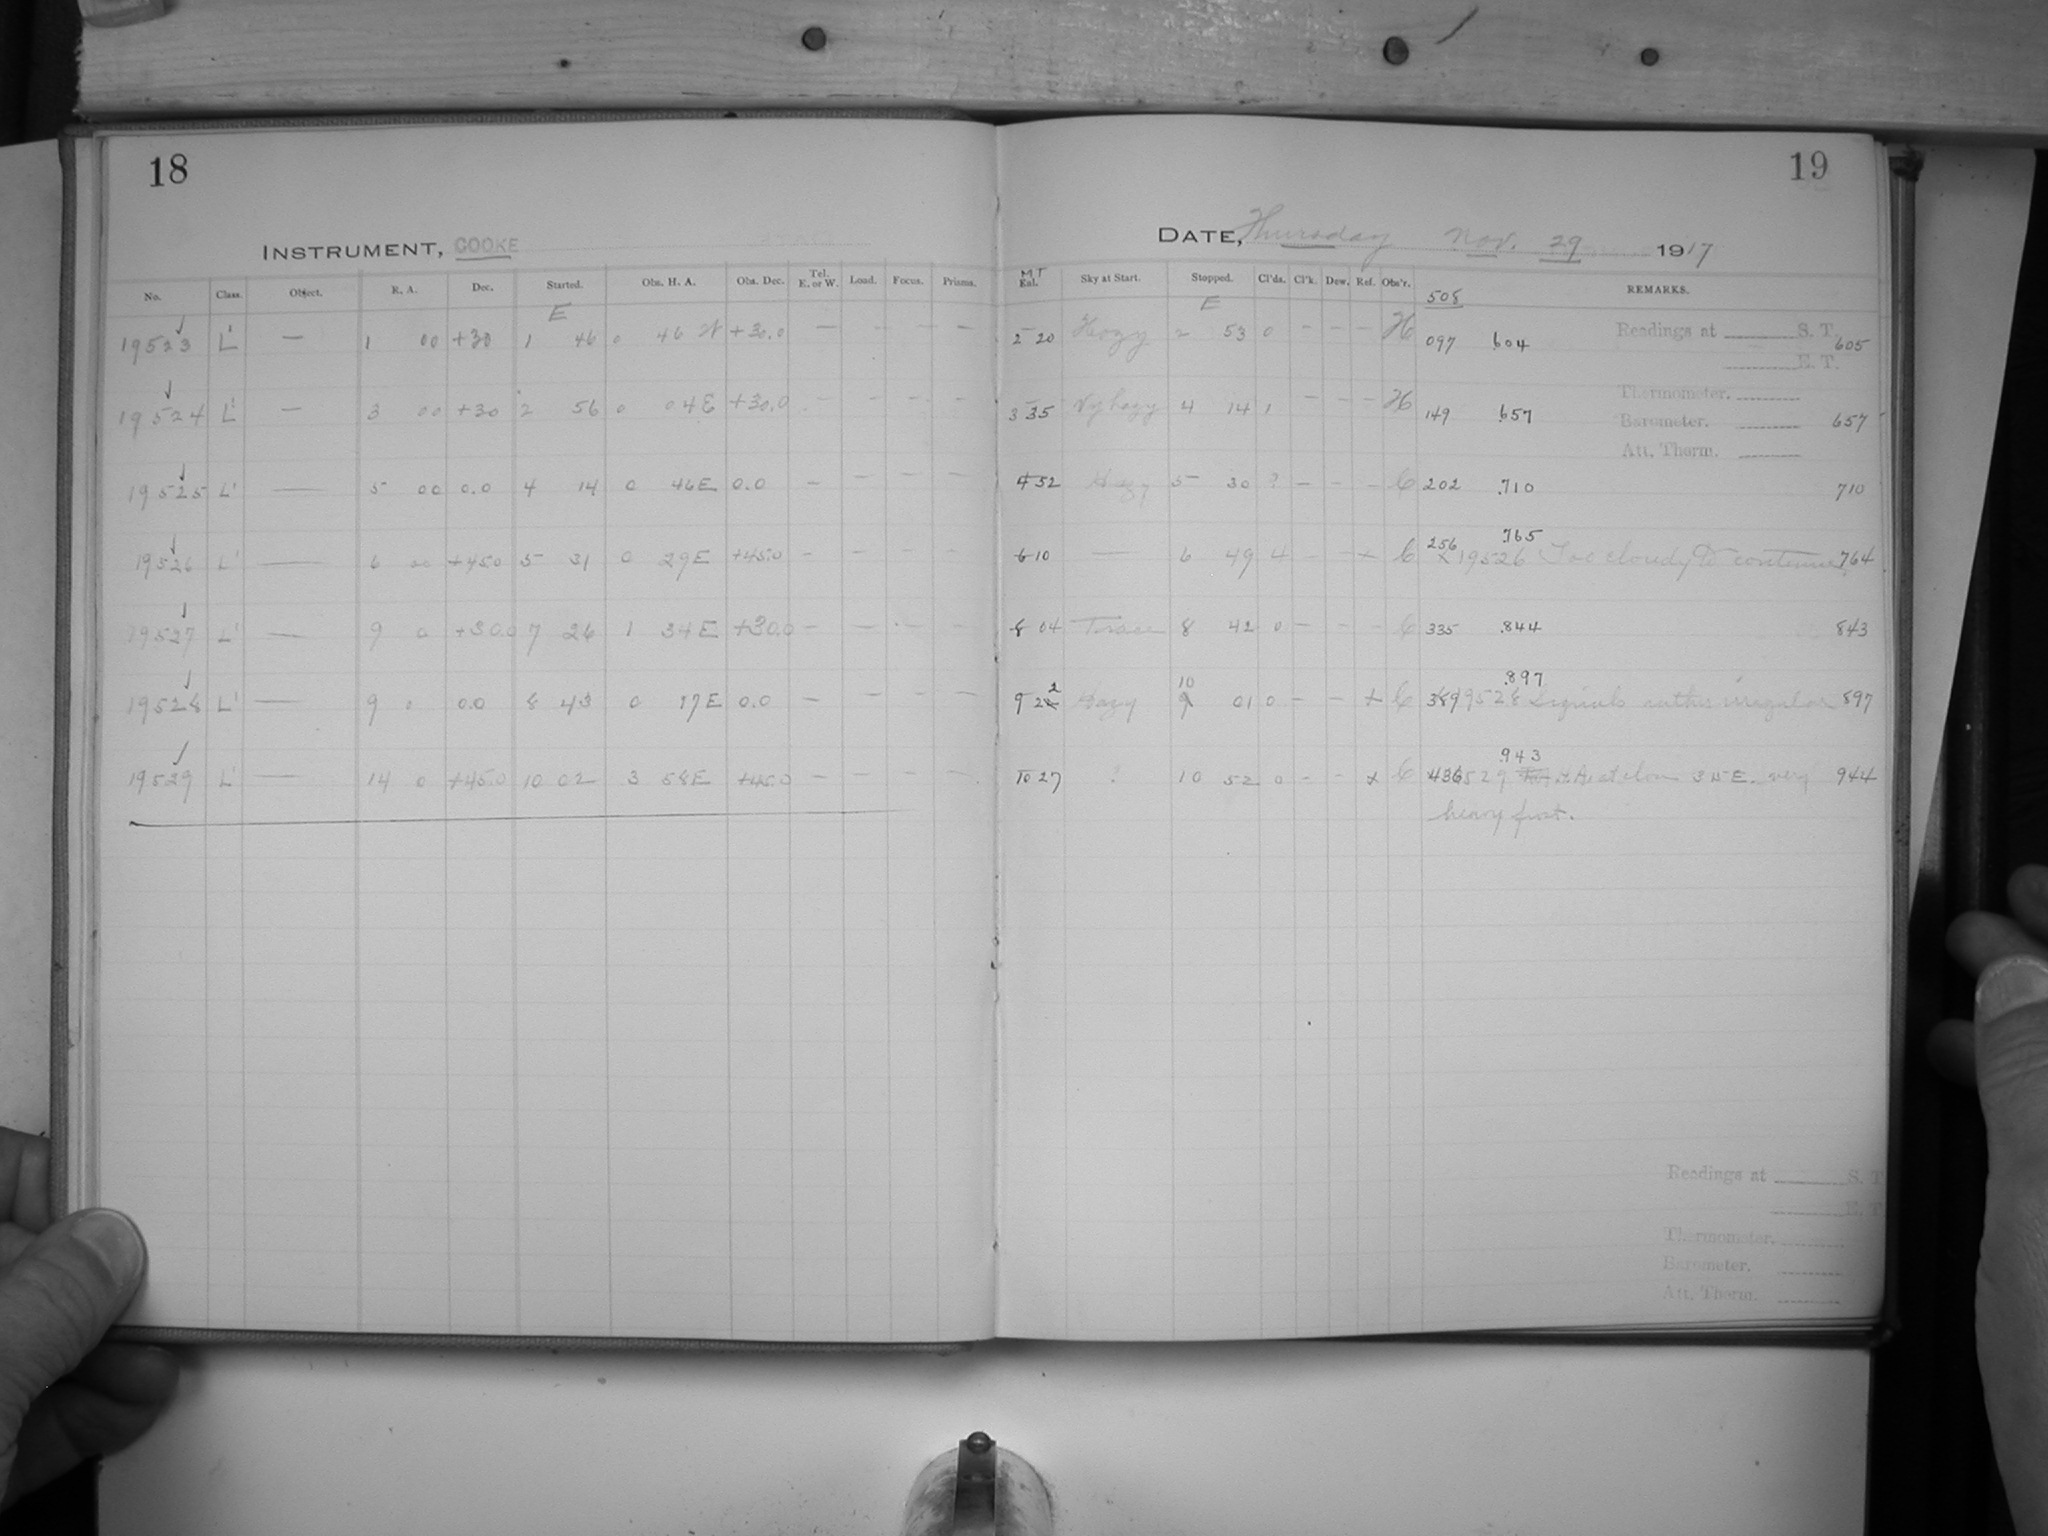 18
INSTRUMENT, COOKE
No. Class. Object. R. A. Dec. Started. Obs. H. A. Obs. Dec. Tel. E. or W. Load. Focus. Prisms.
E
19523 L' — 1 00 +30 1 46 0 46 W +30.0 — - - —
19524 L' — 3 00 +30 2 56 0 04E +30.0 - - - -
19525 L' — 5 00 0.0 4 14 0 46E 0.0 — — — —
19526 L' — 6 00 +45.0 5 31 0 29E +45.0 — — — —
19527 L' — 9 0 +30.0 7 26 1 34E +30.0 — — — —
19528 L' — 9 0 0.0 8 43 0 17E 0.0 — — — —
19529 L' — 14 0 +45.0 10 02 3 58E +45.0 — — — —
19
DATE, Thursday Nov. 29 1917
MT
Eal. Sky at Start. Stopped. Cl'ds. Cl'k. Dew. Ref. Obs'r. REMARKS.
E 508
2 20 Hazy 2 53 0 - - - H 097 .604 605
3 35 Vy hazy 4 14 1 - - - H 149 .657 657
4 52 Hazy 5 30 ? - - - C 202 .710 710
.765
6 10 — 6 49 4 - - x C 256 x 19526 Too cloudy to continue 764
8 04 Trace 8 42 0 - - - C 335 .844 843
2 10 .897
9 22 Hazy 9 01 0 - - x C 389 19528 Signals rather irregular 897
.943
10 27 ? 10 52 0 - - x C 436 529 at close 3 15 E. very 944
heavy frost.
Readings at S. T.
E. T.
Thermometer.
Barometer.
Att. Therm.
Readings at S. T
E. T
Thermometer.
Barometer.
Att. Therm.